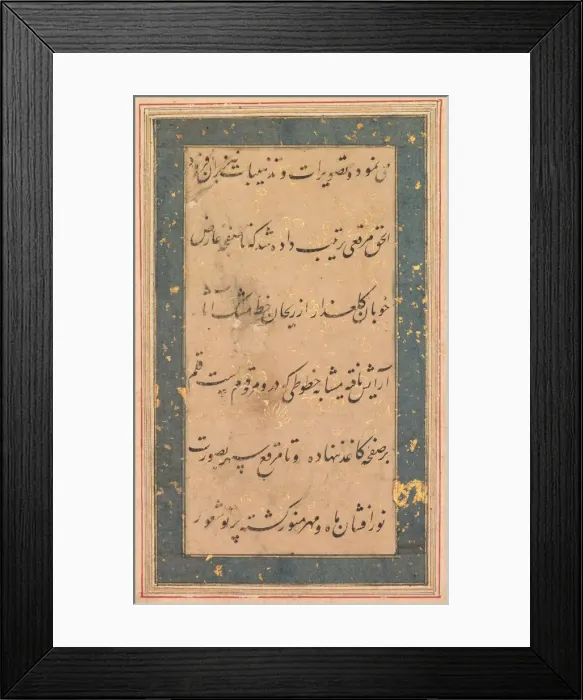 می نموده و تصویرات و تذهیبات نیز بران افزوده
الحق مرقعی ترتیب داده شد که تا صفحه عارض
خوبان گلعذار از ریحان خط مشک
آرایش یافته مشابه خطوطی که درو مرقوم است قلم
بر صفحه کاغذ نهاده و تا مرقع سپهر بصورت
نور افشان ماه و مهر منور گشته پرتو شعور